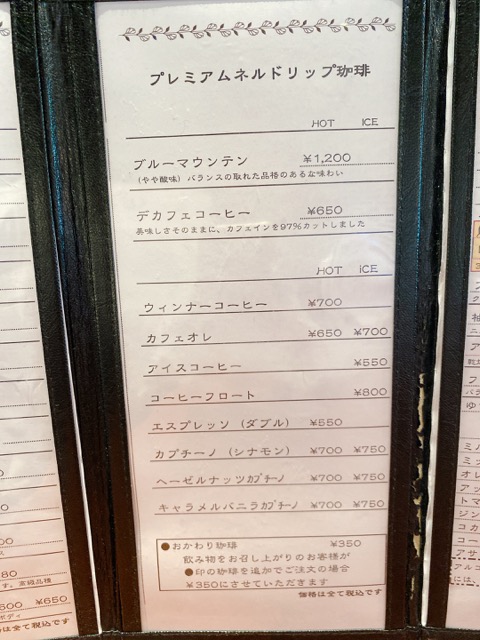 プレミアムネルドリップ珈琲
HOT ICE
ブルーマウンテン ¥1,200
(やや酸味) バランスの取れた品格のあるな味わい
デカフェコーヒー ¥650
美味しさそのままに、カフェインを97%カットしました
HOT ICE
ウィンナーコーヒー ¥700
カフェオレ ¥650 ¥700
アイスコーヒー ¥550
コーヒーフロート ¥800
エスプレッソ (ダブル) ¥550
カプチーノ (シナモン) ¥700 ¥750
ヘーゼルナッツカプチーノ ¥700 ¥750
キャラメルバニラカプチーノ ¥700 ¥750
●おかわり珈琲 ¥350
飲み物をお召し上がりのお客様が
●印の珈琲を追加でご注文の場合
¥350にさせていただきます
価格は全て税込です
80
す。高級品種
600 ¥650
ボディ
格は全て税込です